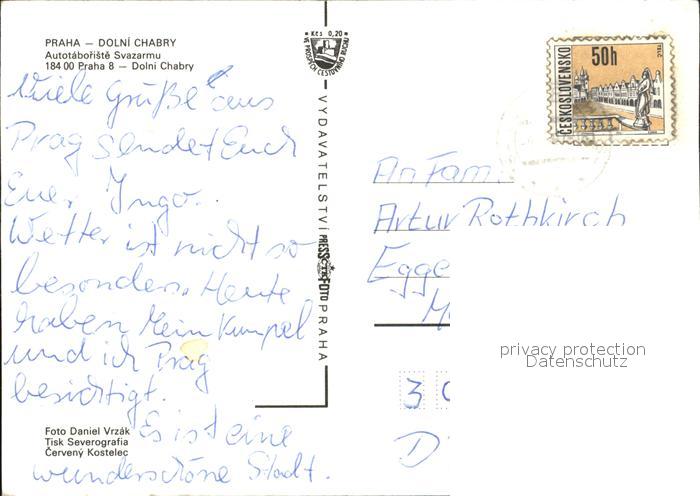 PRAHA — DOLNÍ CHABRY
Autotábořiště Svazarmu
184 00 Praha 8 — Dolní Chabry
Viele Grüße aus
Prag sendet Euch
Euer Ingo.
Wetter ist nicht so
besonders. Heute
haben Mein Kumpel
und ich Prag
besichtigt.
Es ist eine
wunderschöne Stadt.
Foto Daniel Vrzák
Tisk Severografia
Červený Kostelec
Kčs 0,20
VE PROSPĚCH CESTOVNÍHO RUCHU
VYDAVATELSTVÍ PRESSFOTO PRAHA
ČTK
ČESKOSLOVENSKO
50h
TELČ
An Fam.
Artur Rothkirch
Egge
M
3
D
privacy protection
Datenschutz